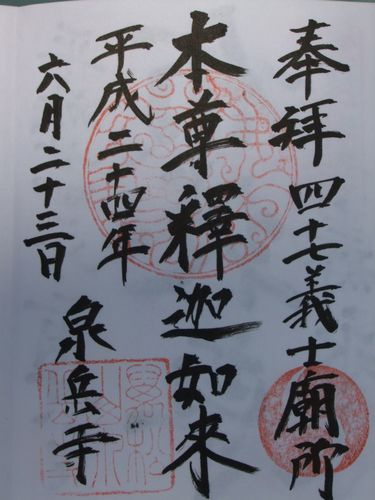 奉拜 四十七義士廟所
本尊釋迦如來
平成二十四年
六月二十三日
泉岳寺